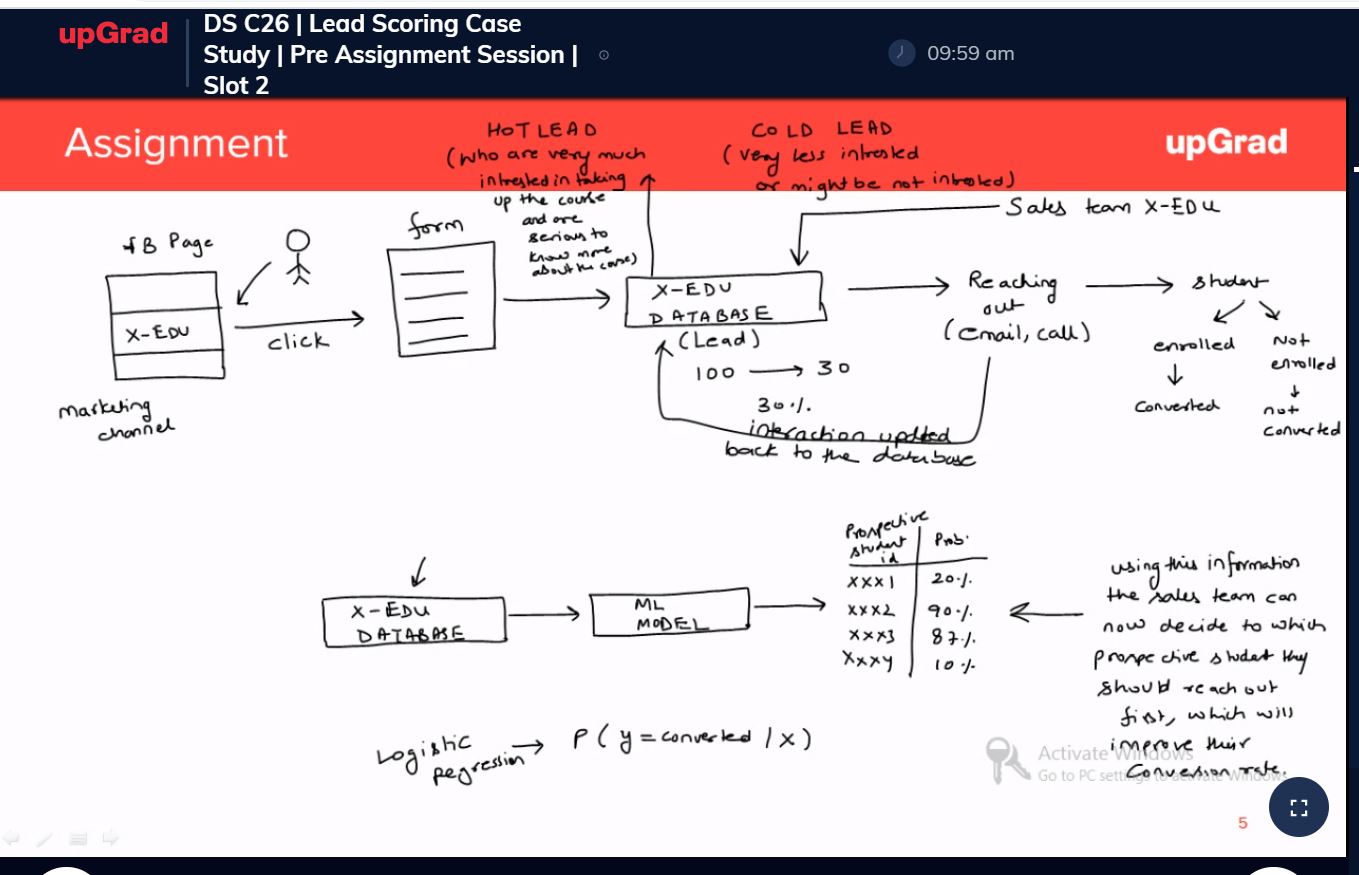 upGrad
DS C26 | Lead Scoring Case
Study | Pre Assignment Session |
Slot 2
09:59 am
Assignment
upGrad
HOT LEAD
(who are very much
intrested in taking
up the course
and are
serious to
know more
about the course)
COLD LEAD
(very less intrested
or might be not intrested)
Sales team X-EDU
FB Page
X-EDU
marketing
channel
click
form
X-EDU
DATABASE
(Lead)
100 → 30
30%.
interaction updted
back to the database
Reaching
out
(email, call)
student
enrolled
converted
Not
enrolled
not
converted
X-EDU
DATABASE
ML
MODEL
Prospective
student
id
Prob.
xxx1 20%.
xxx2 90%.
xxx3 87%.
xxxy 10%.
using this information
the sales team can
now decide to which
prospective student they
should reach out
first, which will
improve their
conversion rate.
Logistic
regression → P(y=converted/x)
Activate Windows
Go to PC settings to activate Windows.
5